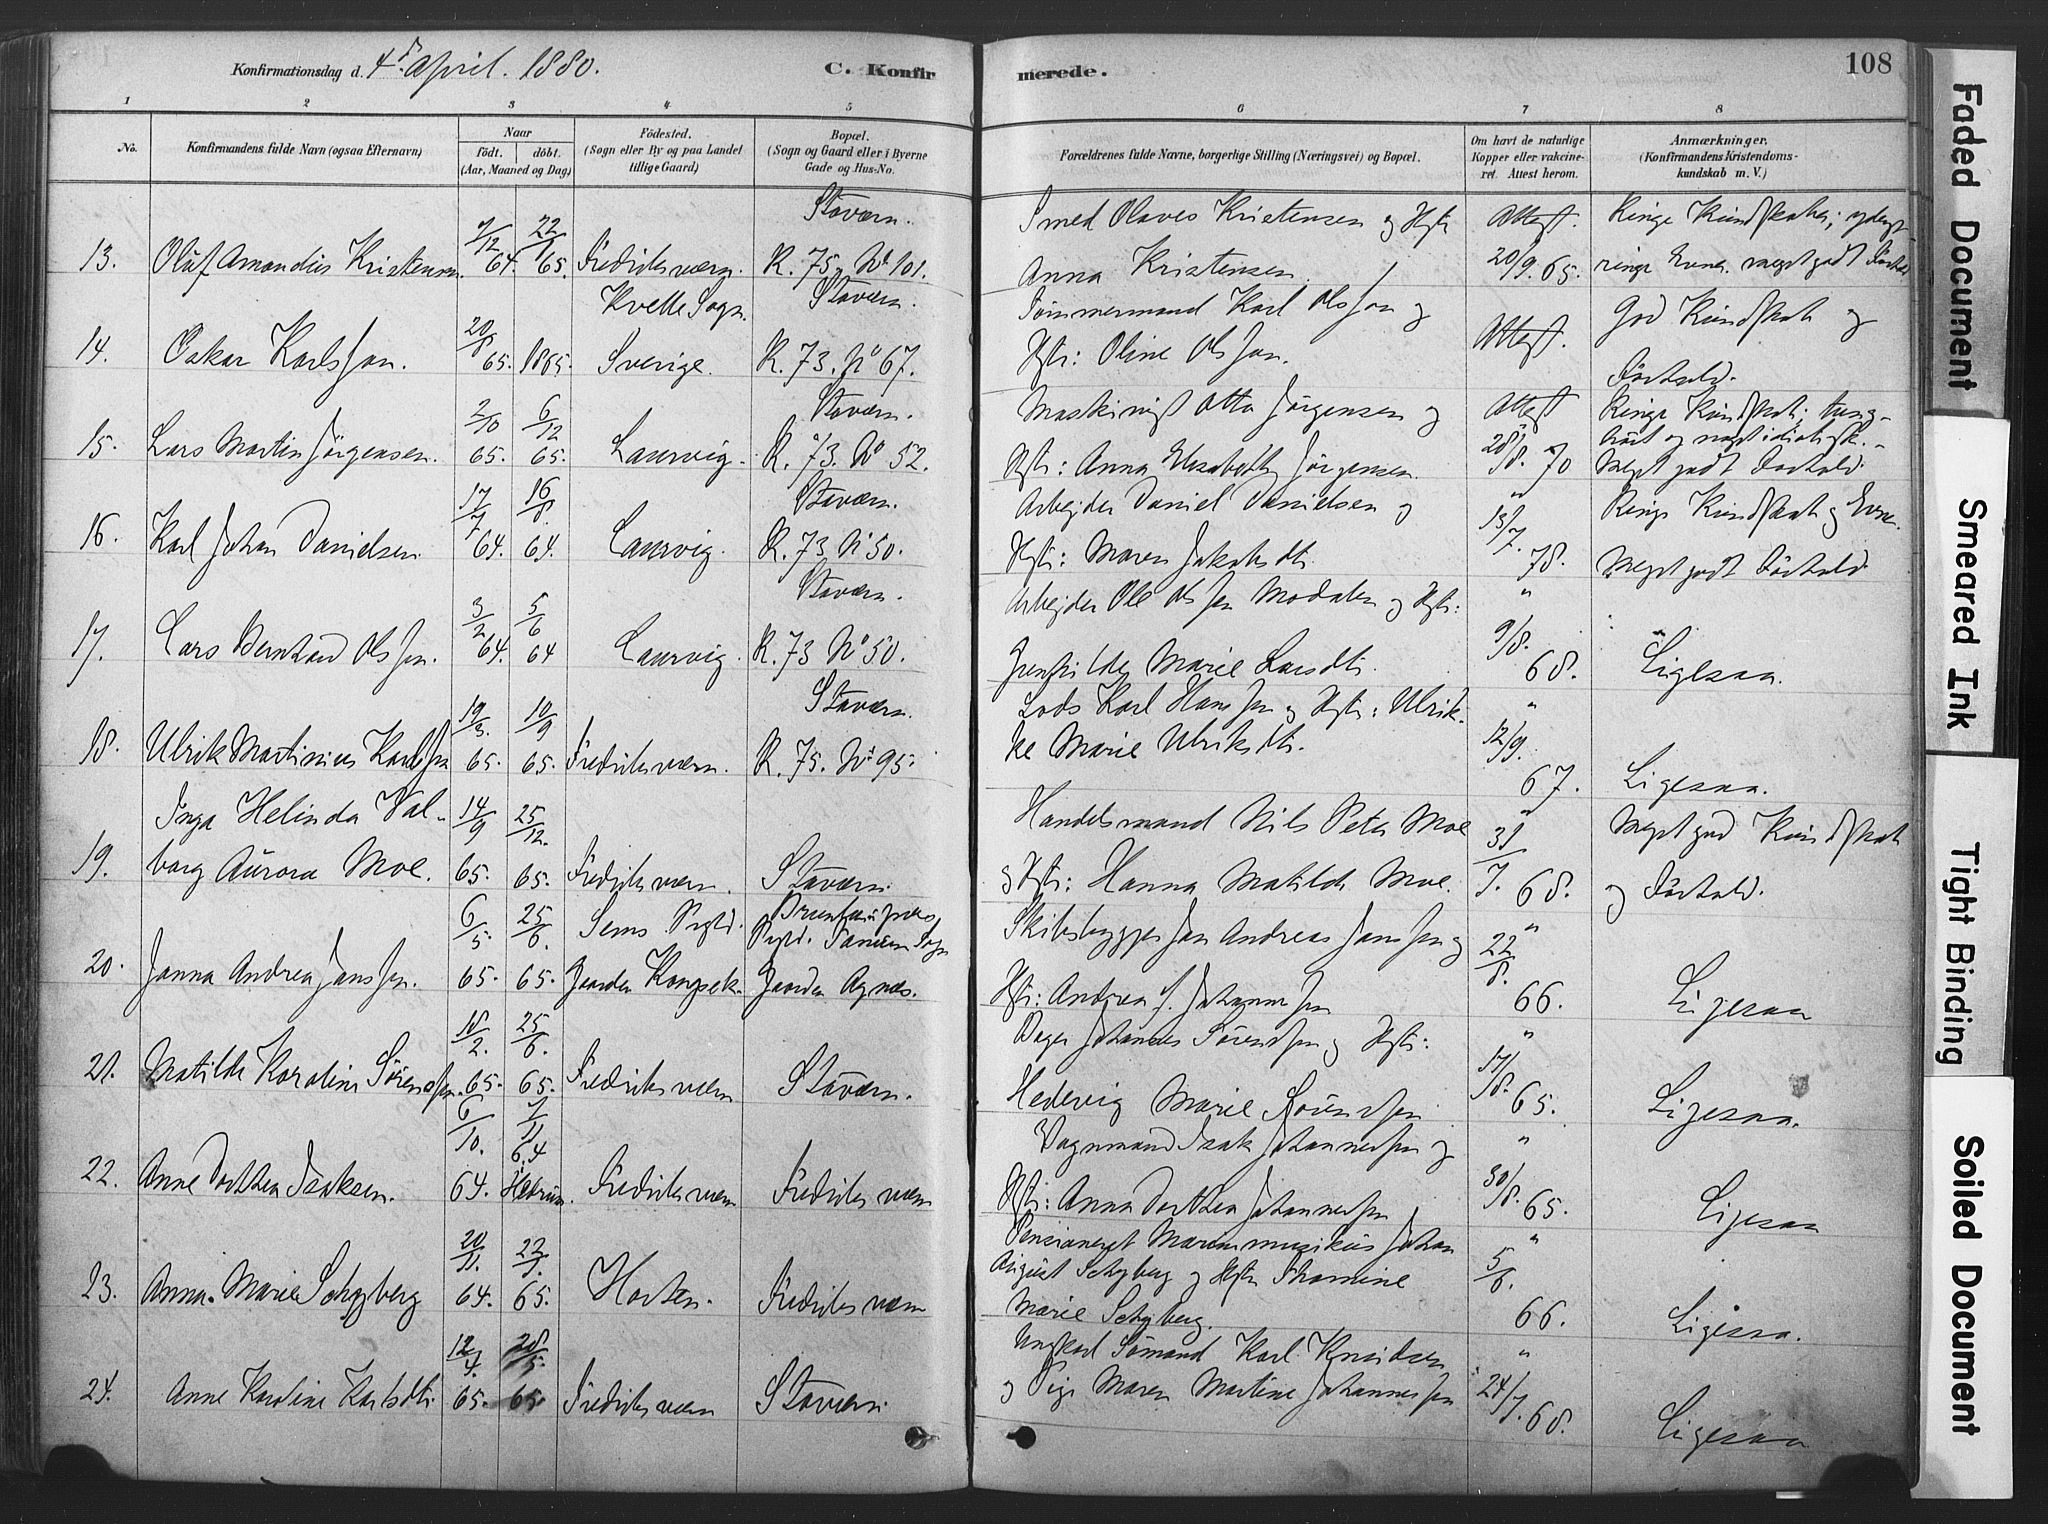 Konfirmationsdag d. 4de April. 1880.
C. Konfirmerede.
108
1 2 3 4 5 6 7 8
No.
Konfirmandens fulde Navn (ogsaa Efternavn)
Naar
födt. döbt.
(Aar, Maaned og Dag)
Födested.
(Sogn eller By og paa Landet
tillige Gaard)
Bopæl.
(Sogn og Gaard eller i Byerne
Gade og Hus-No.
Forældrenes fulde Navne, borgerlige Stilling (Næringsvei) og Bopæl.
Om havt de naturlige
Kopper eller vakcine-
ret. Attest herom.
Anmærkninger.
(Konfirmandens Kristendoms-
kundskab m. V.)
13. Oluf Amandius Kristensen. 7/12 64. 22/1 65. Fredriksværn. Staværn.
R. 75. No 101.
Smed Olaves Kristensen og Hstr
Anna Kristensen.
Attest.
20/9. 65.
Ringe Kundskaber;
ringe Evner. meget godt Forhold
14. Oskar Karlsson. 20/8 65. 1865. Kville Sogn.
Sverige. Staværn.
R. 73. No 67.
Tømmermand Karl Olsson og
Hstr: Oline Olsson.
Attest.
God Kundskab og
Forhold.
15. Lars Martin Jörgensen. 2/10 65. 6/12 65. Laurvig. Staværn.
R. 73. No 52.
Maskinist Otto Jørgensen og
Hstr: Anna Elisabeth Jörgensen.
Attest
28/8. 70
Ringe Kundskab; tung-
Meget godt Forhold.
16. Karl Johan Danielsen. 17/7 64. 16/8 64. Laurvig. Staværn.
R. 73. No 50.
Arbejder Daniel Danielsen og
Hstr: Maren Jakobsdtr.
" 13/7. 78.
Ringe Kundskab og Evne.
Meget godt Forhold.
17. Lars Bernhard Olssen. 3/2 64. 5/6 64 Laurvig. Staværn.
R. 73 No 50.
Arbejder Ole Olssen Modalen og Hstr:
Marie Larsdtr.
" 9/8. 68.
Ligesaa.
18. Ulrik Martinius Karlssen 19/3. 65. 10/9 65. Fredriksværn. Staværn.
R. 75. No 95.
Lods Karl Hanssen og Hstr: Ulrik-
ke Marie Ulriksdtr.
" 12/9. 67.
Ligesaa.
19. Inga Helinda Val-
borg Aurora Moe. 14/9 65. 25/12. 65. Fredriksværn. Staværn.
Handelsmand Nils Peter Moe
og Hstr: Hanna Matilde Moe.
" 31/7. 68.
Meget god Kundskab
og Forhold.
20. Janna Andrea Janssen. 6/5 65. 25/6. 65. Sems Prgld.
Gaarden Kongsek. Brunlanæs
Prgld. Tanum Sogn
Gaarden Agnæs.
Skibsbygger Jan Andreas Janssen og
Hstr: Andrea J. Johannessen
" 22/8. 66.
Ligesaa
21. Matilde Karoline Sörenssen. 18/2. 65. 25/6. 65. Fredriksværn Staværn.
Bager Johannes Sörenssen og Hstr:
Hedevig Marie Sörenssen
" 17/8. 65.
Ligesaa.
22. Anne Dorthea Isaksen. 6/10. 64. 7/11 64
Hedrum. Fredriksværn Fredriksværn
Vognmand Isak Johannessen og
Hstr: Anna Dorthea Johannessen
" 30/8. 65.
Ligesaa
23. Anna Marie Schyberg 20/11. 64. 22/1. 65. Horten. Fredriksværn
Pensioneret Marinemusikus Johan
August Schyberg og Hstr Thomine
Marie Schyberg.
" 5/6. 66.
Ligesaa.
24. Anne Karoline Karlsdtr. 12/4. 65. 28/5. 65. Fredriksværn Staværn.
Ungkarl Sømand Karl Knudsen
og Pige Maren Martine Johannessen
" 24/7. 68.
Ligesaa
Faded Document
Smeared Ink
Tight Binding
Soiled Document